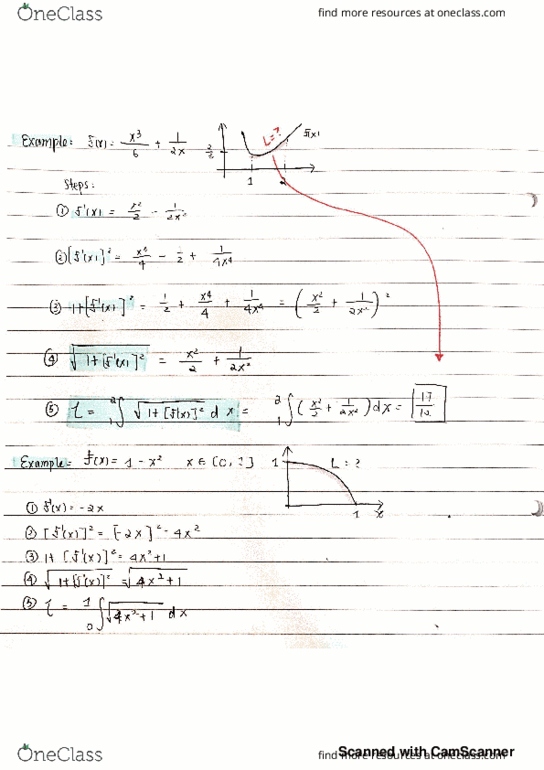 OneClass
find more resources at oneclass.com
Example: f(x) = x³/6 + 1/2x
L=? f(x)
1 2
Steps:
① f'(x) = x²/2 - 1/2x²
② [f'(x)]² = x⁴/4 - 1/2 + 1/4x⁴
③ 1+[f'(x)]² = 1/2 + x⁴/4 + 1/4x⁴ = (x²/2 + 1/2x²)²
④ √1+[f'(x)]² = x²/2 + 1/2x²
⑤ L = ₁²∫ √1+[f'(x)]² dx = ₁²∫ (x²/2 + 1/2x²) dx = 17/12
Example: f(x) = 1 - x² x ∈ [0, 1]
1 L = ?
1 x
① f'(x) = -2x
② [f'(x)]² = [-2x]² = 4x²
③ 1+ [f'(x)]² = 4x²+1
④ √1+[f'(x)]² = √4x²+1
⑤ L = ₀¹∫ √4x²+1 dx
OneClass
find more resources at oneclass.com
Scanned with CamScanner